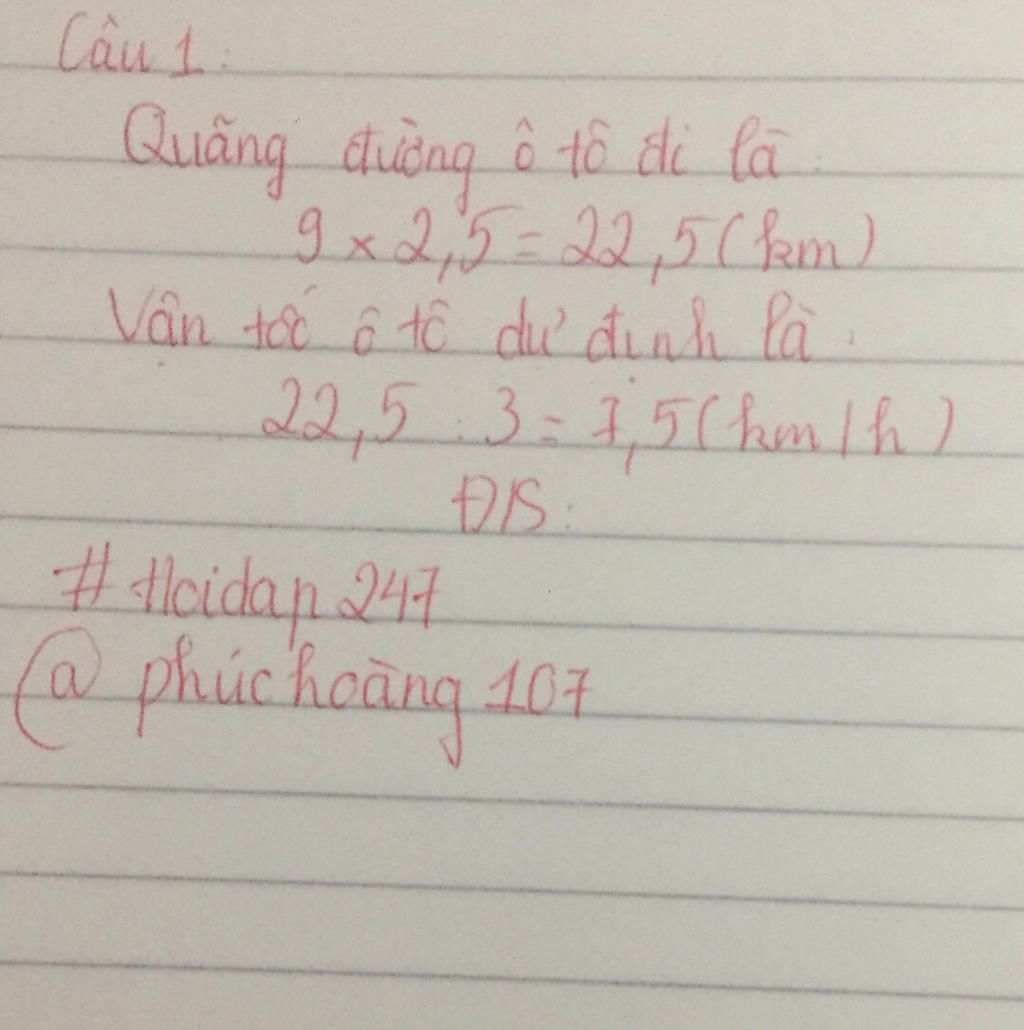 Câu 1:
Quãng đường ô tô đi là:
9 x 2,5 = 22,5 (km)
Vận tốc ô tô dự định là:
22,5 : 3 = 7,5 (km/h)
Đ/S:
# Hoidap 247
@ phúchoàng 107